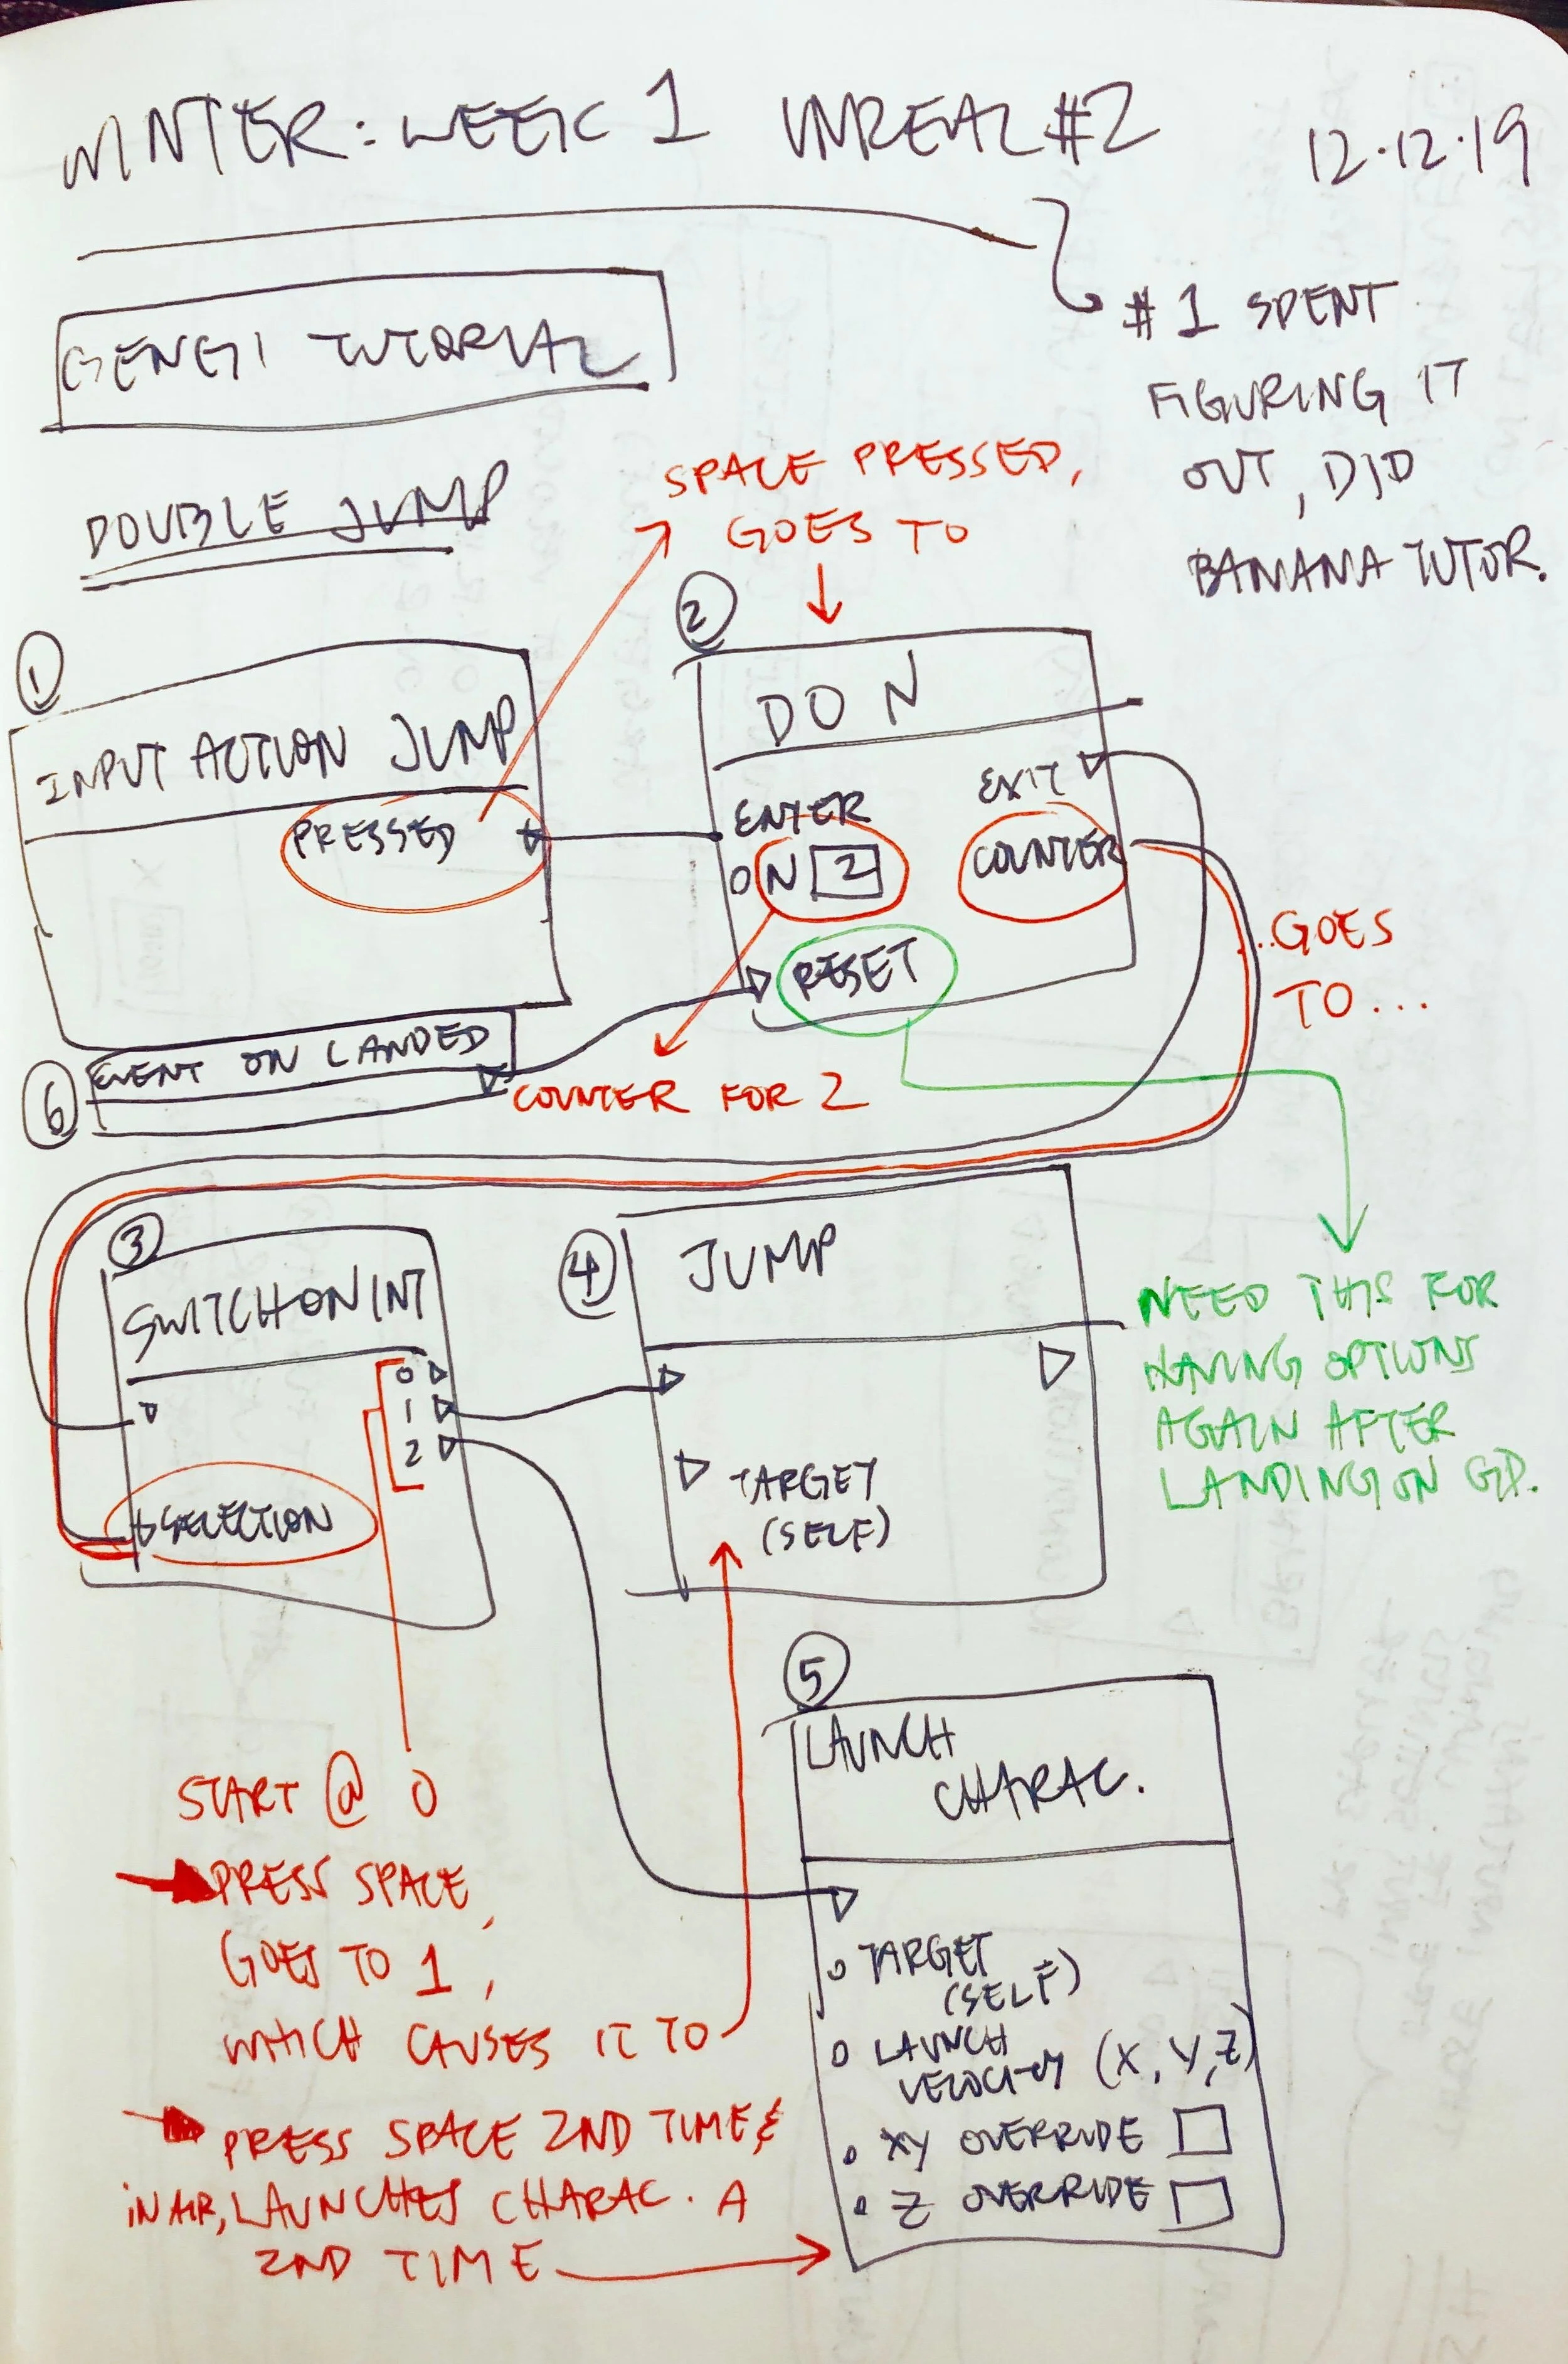 WINTER: WEEK 1 UNREAL #2 12.12.19
#1 SPENT
FIGURING IT
OUT, DID
BANANA TUTOR.
GENGI TUTORIAL
DOUBLE JUMP
SPACE PRESSED,
GOES TO
1
INPUT ACTION JUMP
PRESSED
2
DO N
ENTER
EXIT
N 2
COUNTER
RESET
...GOES
TO...
6
EVENT ON LANDED
COUNTER FOR 2
3
SWITCH ON INT
0
1
2
SELECTION
4
JUMP
TARGET
(SELF)
NEED THIS FOR
HAVING OPTIONS
AGAIN AFTER
LANDING ON GD.
5
LAUNCH
CHARAC.
TARGET
(SELF)
LAUNCH
VELOCITY (X, Y, Z)
XY OVERRIDE
Z OVERRIDE
START @ 0
PRESS SPACE,
GOES TO 1,
WHICH CAUSES IT TO
PRESS SPACE 2ND TIME &
IN AIR, LAUNCHES CHARAC. A
2ND TIME